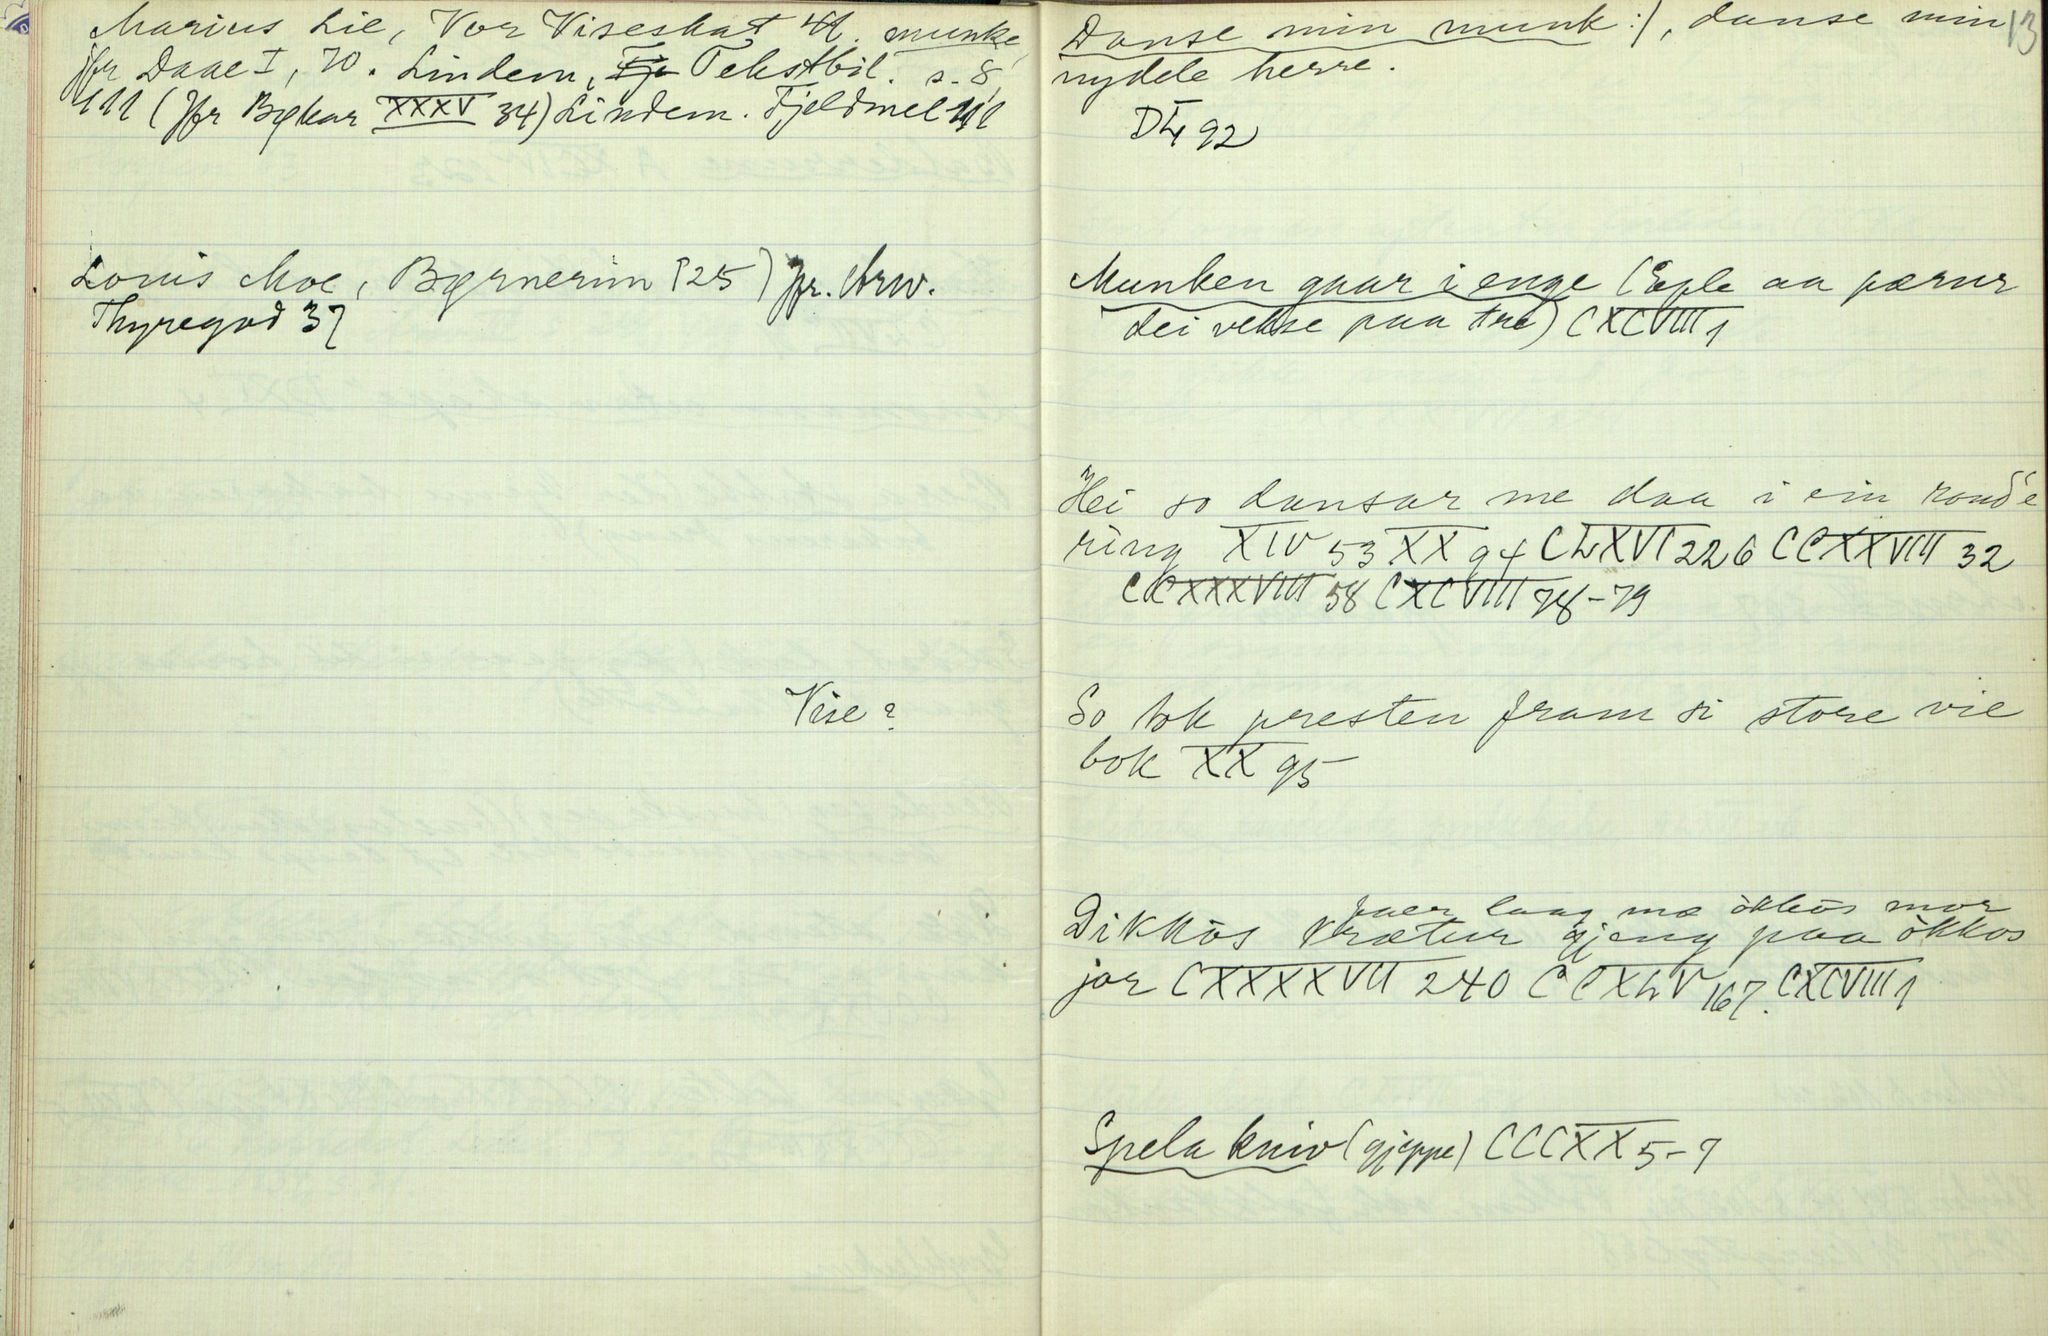 Marius Lie, Vor Viseskat 41. munke
jfr Daae I, 70. Lindem, Tekstbil. s. 8,
111 (Jfr Bøkar XXXV 34) Lindem. Fjeldmel 111
Louis Moe, Børnerim (25) jfr. Arw.
Thyregod 37
Vise?
13
Danse min munk :/, danse min
nydele herre.
DL 92
Munken gaar i enge (Eple aa pærur
dei vekse paa tre) CXCVIII 1
Hei so dansar me daa i ein rond'e
ring XIV 53 XX 94 CLXVI 226 CCXXVIII 32
CCXXXVIII 58 CXCVIII 78-79
So tok presten fram si store vie
bok XX 95
laag mæ ökkös mor
Dikkös krætur gjeng paa ökkos
jor CXXXXVII 240 CCXLV 167. CXCVIII 1
Spela kniv (gjeppe) CCCXX 5-7